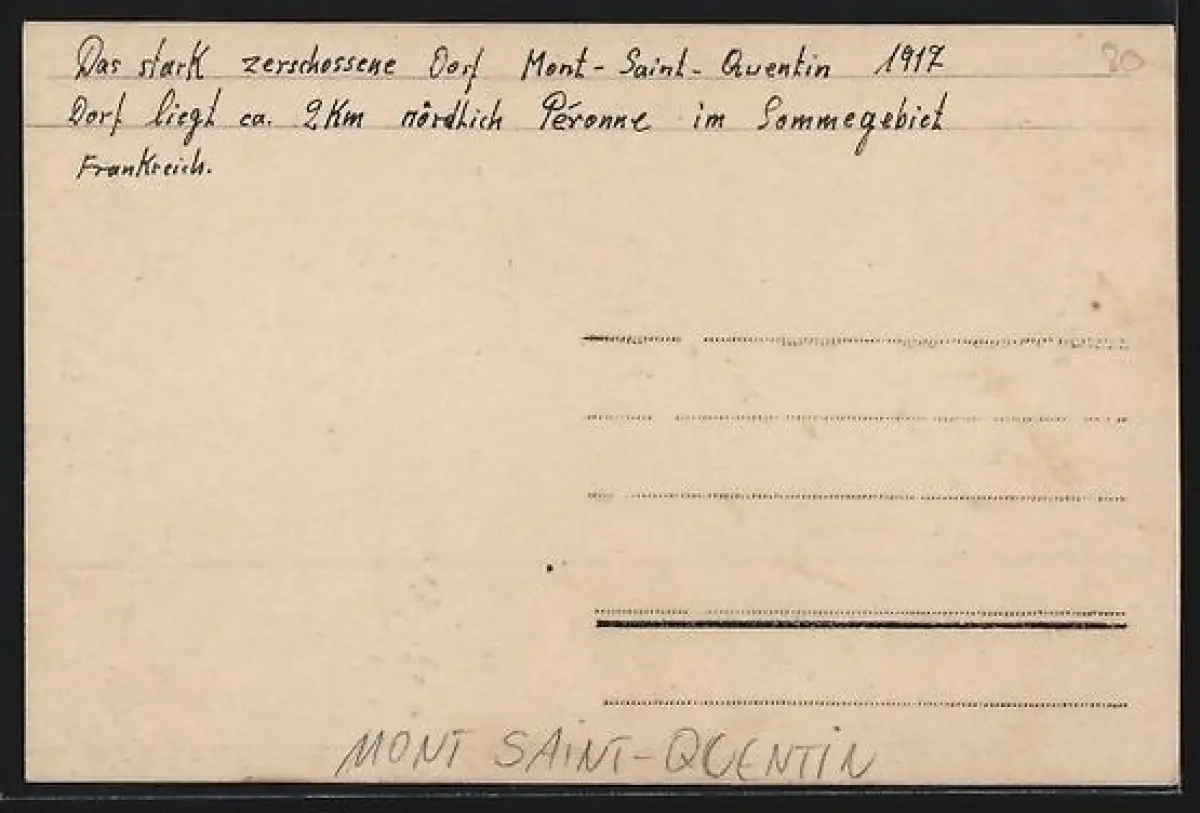 Das stark zerschossene Dorf Mont-Saint-Quentin 1917
20
Dorf liegt ca. 2Km nördlich Péronne im Sommegebiet
Frankreich.
MONT SAINT-QUENTIN